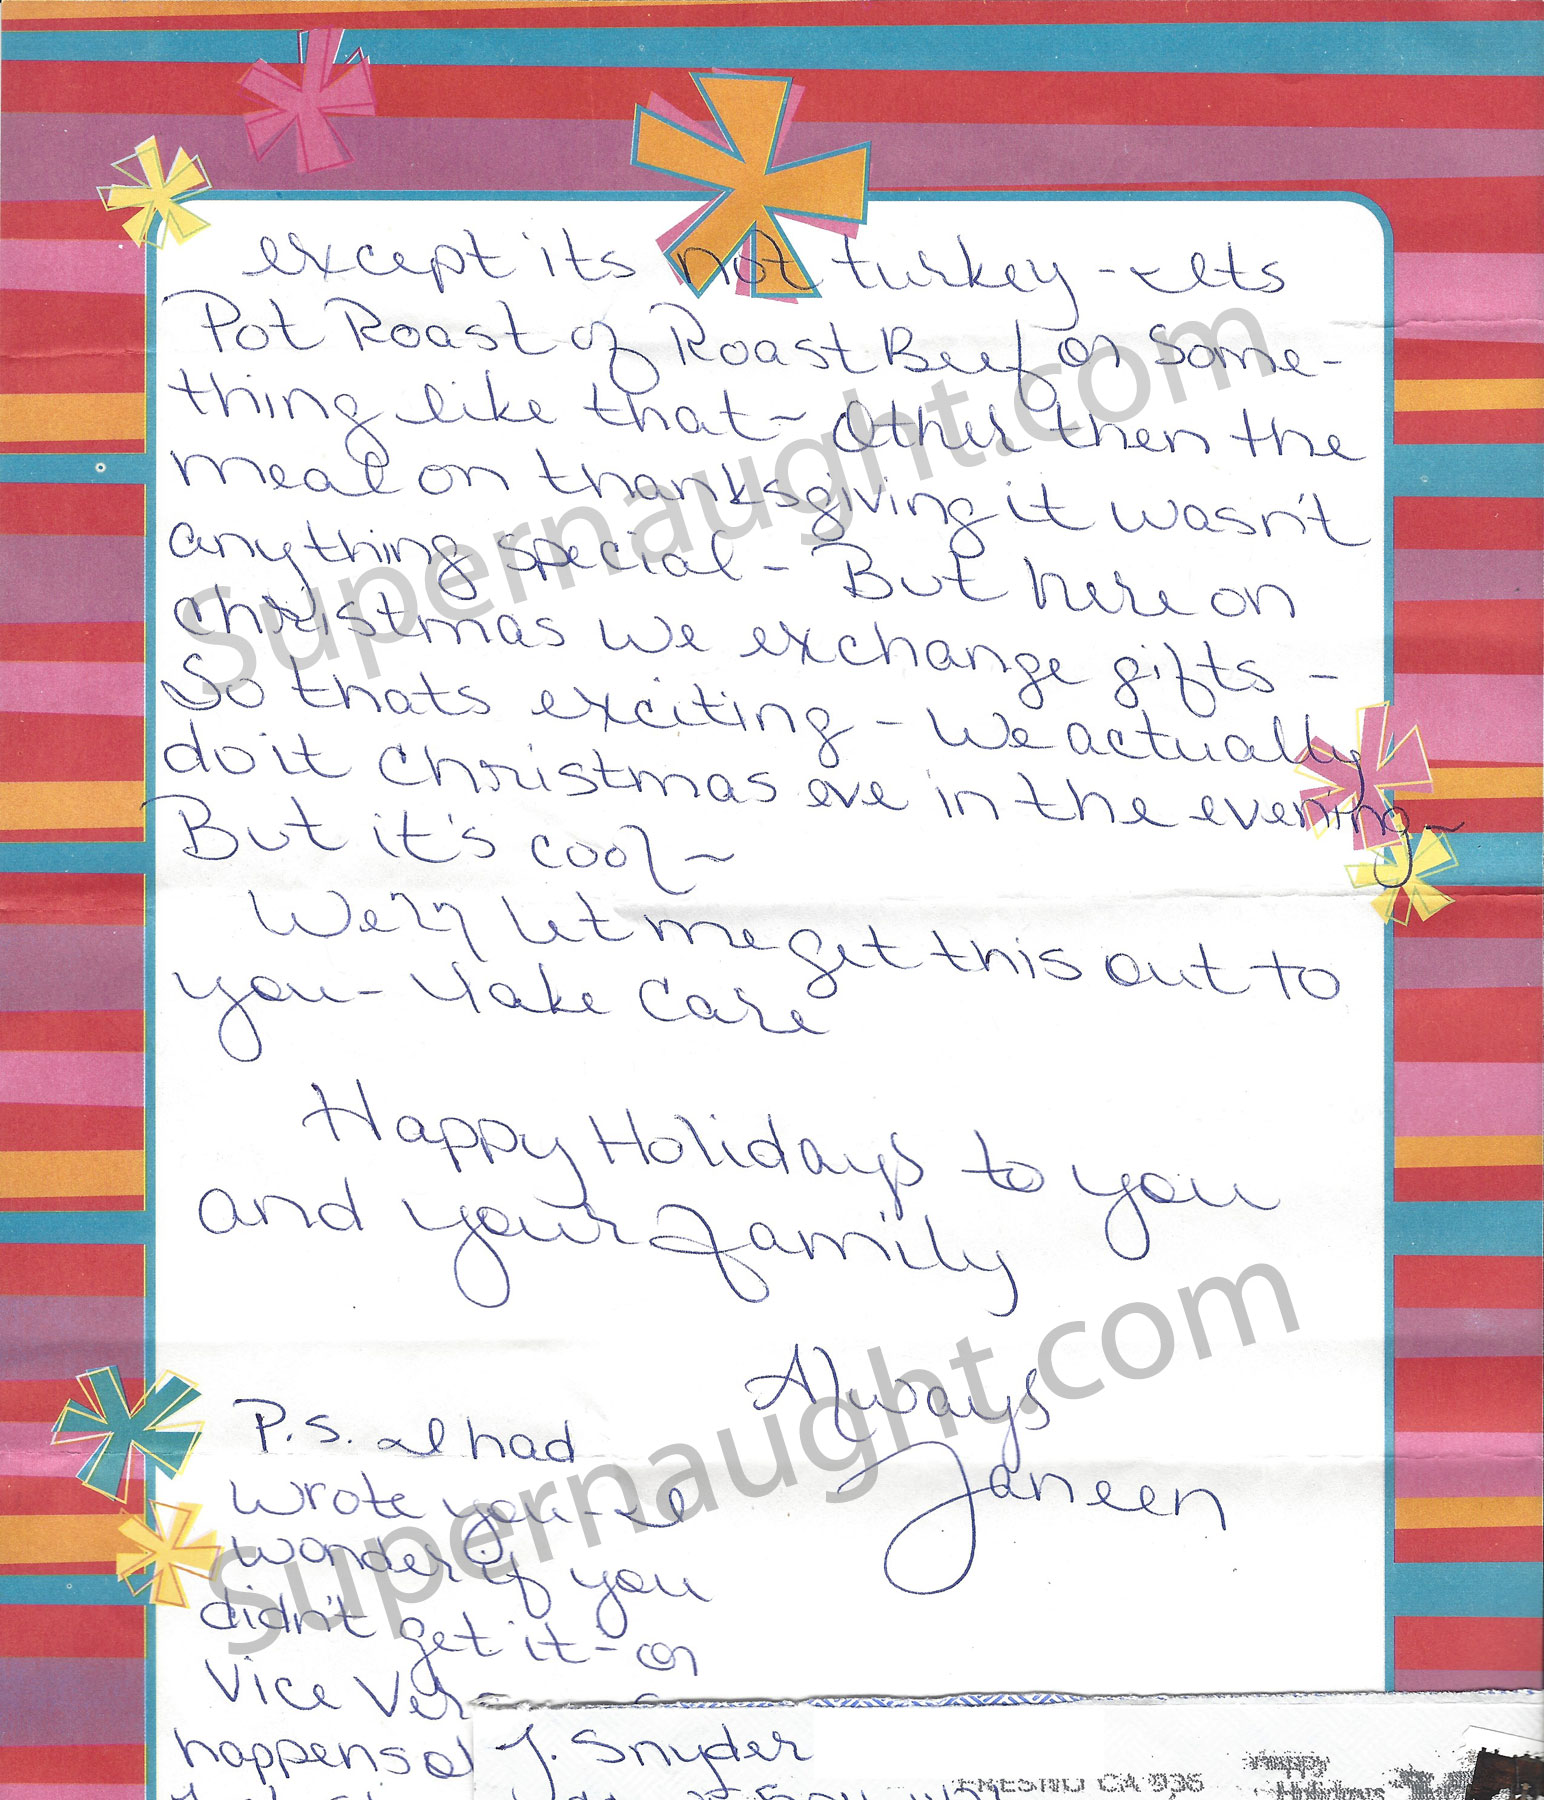 except its not turkey - Its
Pot Roast of Roast Beef or Some-
thing like that ~ Other then the
meal on thanksgiving it wasn't
anything special - But here on
christmas we exchange gifts -
So thats exciting - We actually
do it christmas eve in the evening ~
But it's cool ~
Well let me get this out to
you - Take Care
Happy Holidays to you
and your family
Always
Janeen
P.S. I had
wrote you - I
wonder if you
didn't get it - or
Vice Ver
happens a
J. Snyder
FRESNO CA 936
Happy
Holidays
Supernaught.com
Supernaught.com